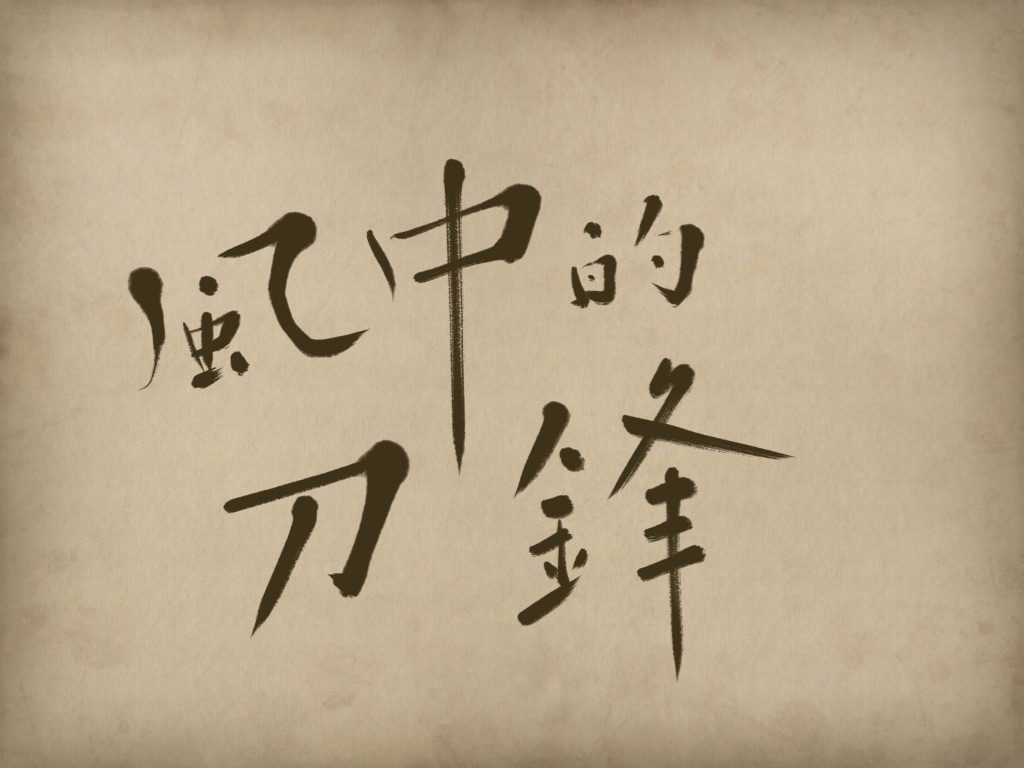 風中的
刀鋒